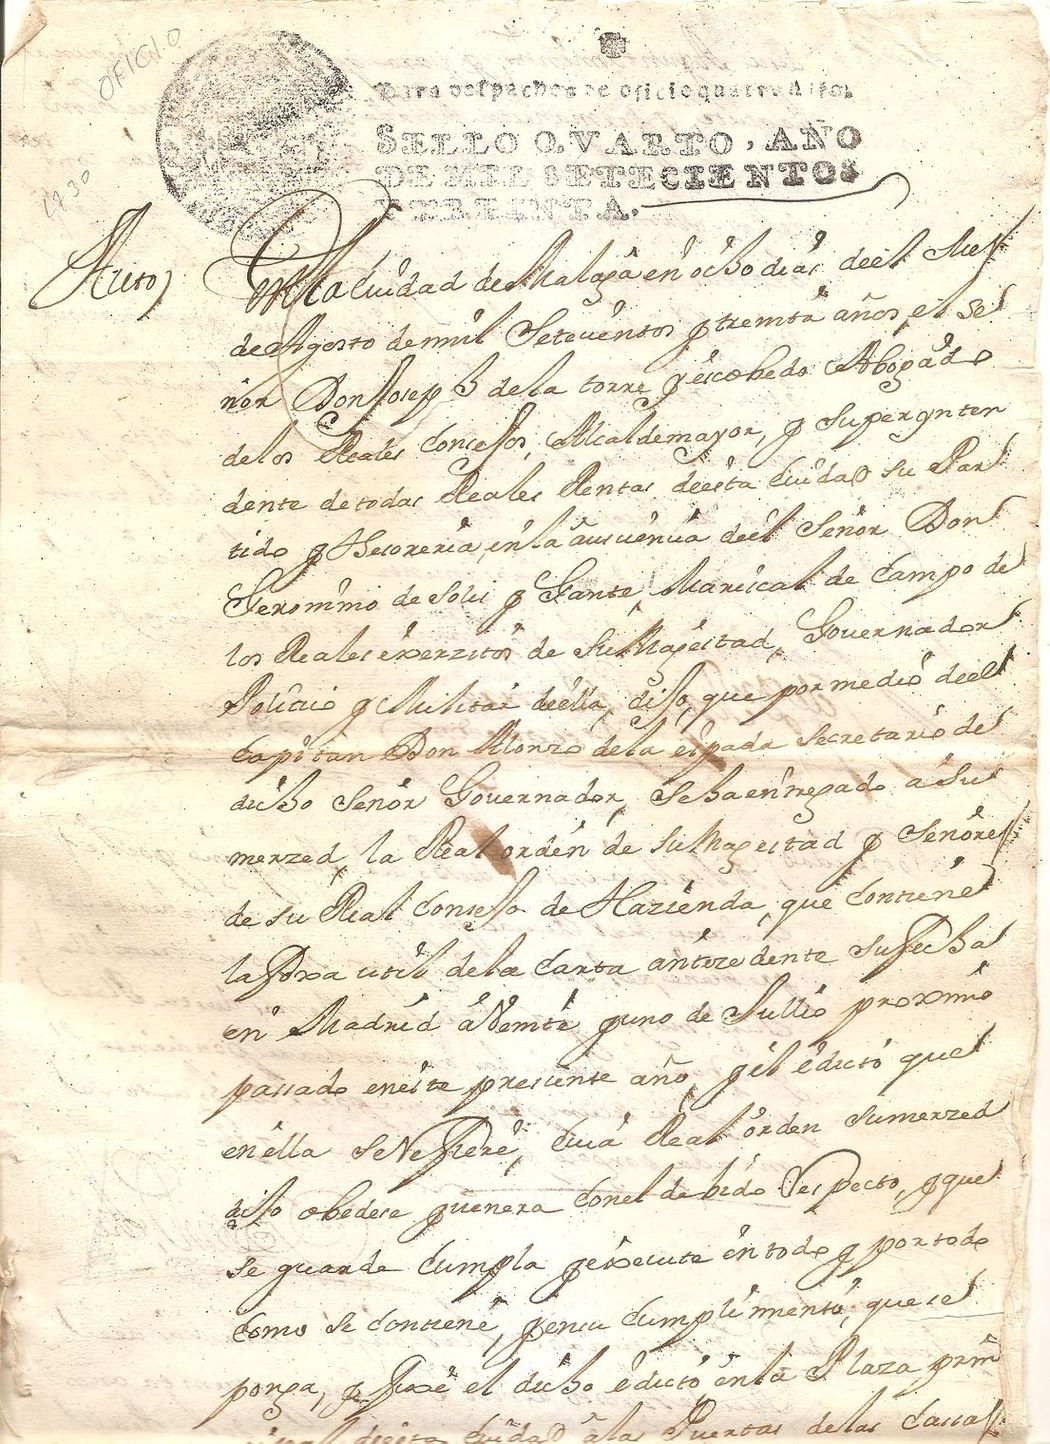 OFICIO
1730
Para despachos de oficio quatro mrs.
SELLO QVARTO, AÑO
DE MIL SETECIENTOS
Y TREINTA.
Auto
En la Ciudad de Malaga en ocho dias deel Mes
de Agosto de mill Setecientos y treinta años, el Se
ñor Don Joseph de la torre y escobedo Abogado
de los Reales Consejos, Alcalde mayor, y Superynten
dente de todas Reales Rentas deesta Ciudad su Par
tido y thesoreria, en la ausencia deel Señor Don
Geronimo de Solis y Gante, Mariscal de Campo de
los Reales exerzitos de Su Magestad, Governador
Politico y Militar deella, dijo, que por medio deel
Capitan Don Alonzo de la espada secretario de
dicho Señor Governador, se ha entregado a Su
merzed, la Real orden de Su Magestad y Señores
de su Real Consejo de Hazienda, que Contiene
la foxa util de la Carta antezedente su fecha
en Madrid a Veinte y uno de Jullio proximo
passado eneste presente año, y el edicto que
en ella se Refiere, Cuia Real orden su merzed
dijo obedese y venera Con el debido Respecto, y que
se guarde Cumpla y execute en todo y por todo
Como se Contiene, y en su Cumplimiento, que se
ponga, y fixe el dicho edicto, en la Plaza prin
cipal deesta Ciudad a las Puertas de las Cassas